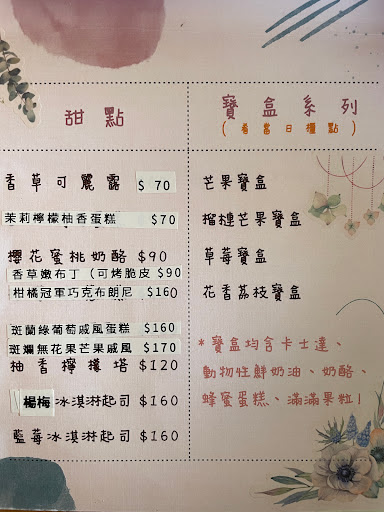 甜點
香草可麗露 $ 70
茉莉檸檬柚香蛋糕 $70
櫻花蜜桃奶酪 $90
香草嫩布丁 (可烤脆皮 $90
柑橘冠軍巧克布朗尼 $160
斑蘭綠葡萄戚風蛋糕 $160
斑斕無花果芒果戚風 $170
柚香檸檬塔 $120
楊梅冰淇淋起司 $160
藍莓冰淇淋起司 $160
寶盒系列
(看當日櫃點)
芒果寶盒
榴槤芒果寶盒
草莓寶盒
花香荔枝寶盒
*寶盒均含卡士達、
動物性鮮奶油、奶酪、
蜂蜜蛋糕、滿滿果粒!